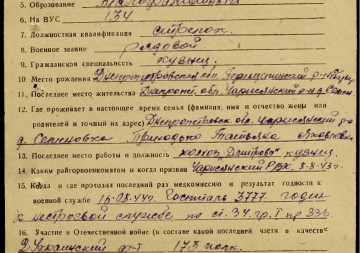 5. Образование
6. На ВУС 134
7. Должностная квалификация стрелок
8. Военное звание рядовой
9. Гражданская специальность кузнец
10. Место рождения Днепропетровская обл.
11. Последнее место жительства Днепропет. обл.
12. Где проживает в настоящее время семья (фамилия, имя и отчество жены или
родителей и точный адрес) Днепропетровская обл.
д. Семеновка Приходько Татьяна Яковлевна
13. Последнее место работы и должность колхоз кузнец
14. Каким райгорвоенкоматом и когда призван РВК 8-8-43г.
15. Когда и где проходил последний раз медкомиссию и результат годности к
военной службе 16.08.44г. Госпиталь 3777 годен
к нестроевой службе по ст. 34 гр. I пр 336.
16. Участие в Отечественной войне (в составе какой последней части в качестве
2 Украинский ф-т 173 полк.